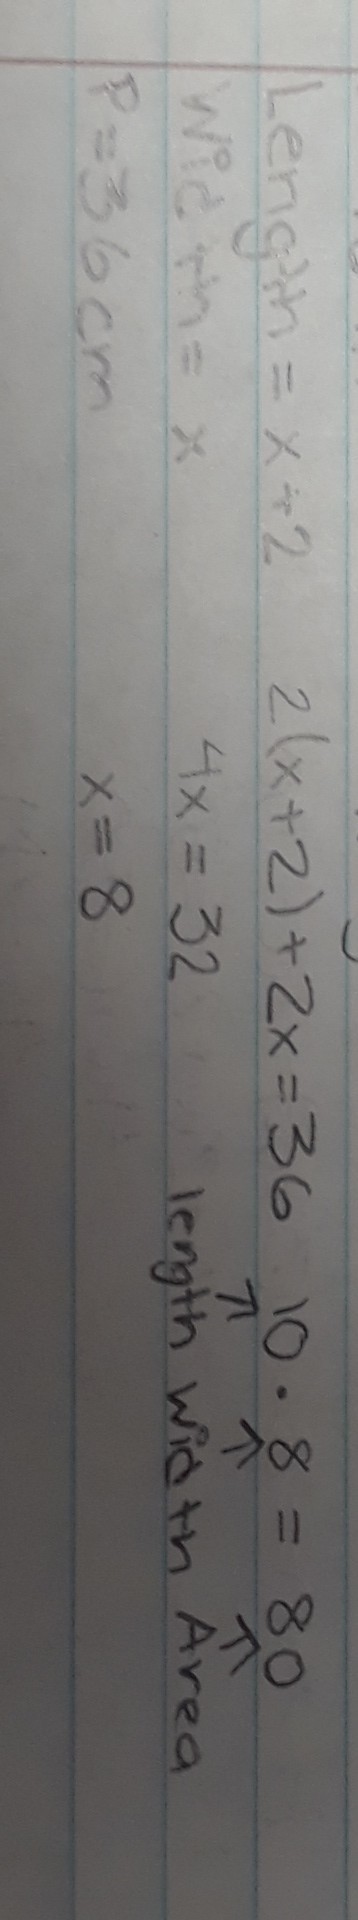 Length = x+2 2(x+2)+2x=36 10 · 8 = 80
Width = x 4x = 32 length width Area
P=36cm x=8